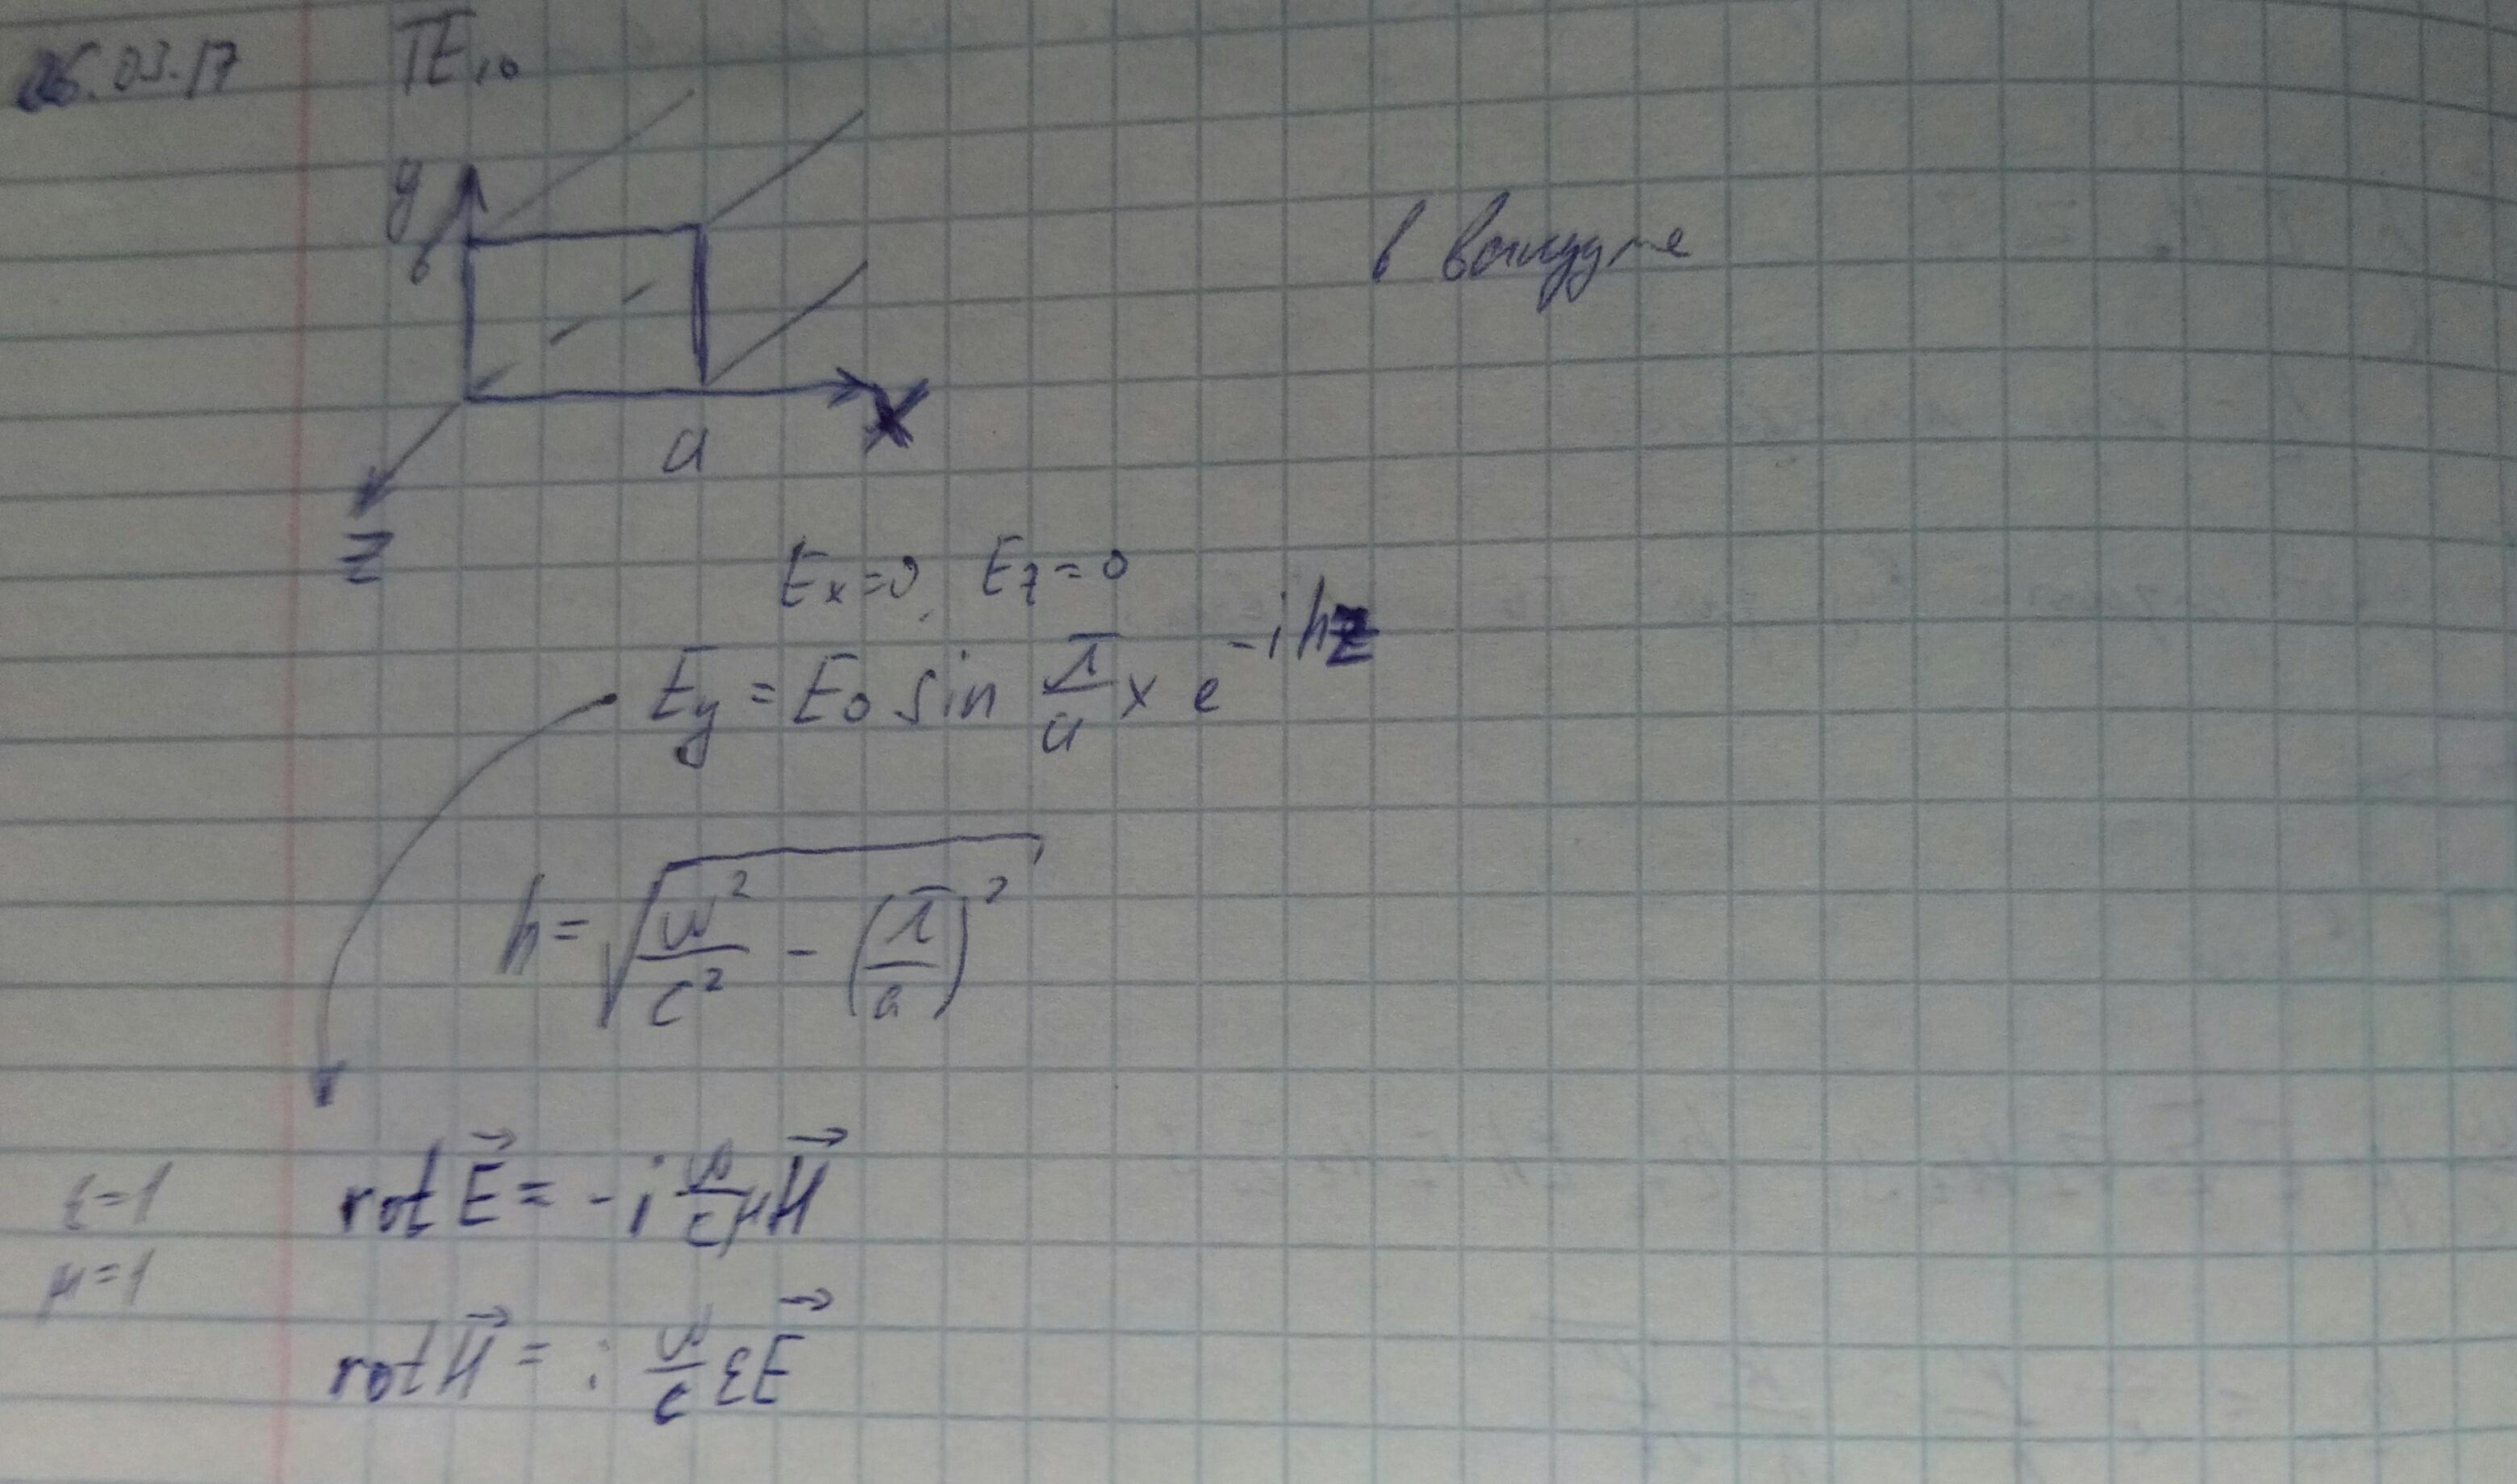 06.03.17 TE₁₀
y
b
в вакууме
x
a
z
Eₓ=0, E_z=0
E_y = E₀ sin π/a x e^{-ihz}
h = √(ω²/c² - (π/a)²)
ε=1 rot E⃗ = -i ω/c μ H⃗
μ=1
rot H⃗ = i ω/c ε E⃗